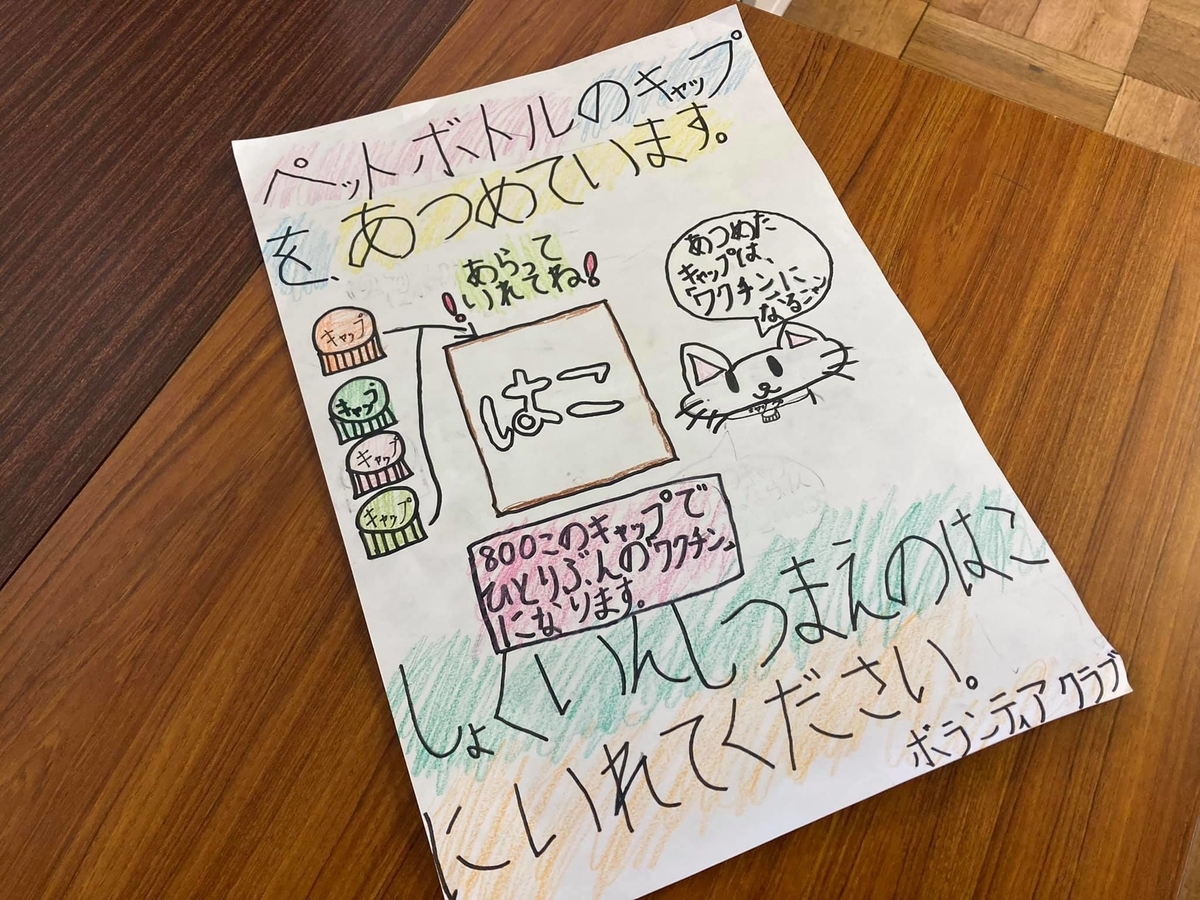 ペットボトルのキャップ
を、あつめています。
あらって
いれてね!
!
あつめた
キャップは、
「ワクチン」に
なるニャン
キャップ
キャップ
キャップ
キャップ
はこ
800このキャップで
ひとりぶんの「ワクチン」
になります。
しょくいんしつまえのはこ
にいれてください。
ボランティアクラブ